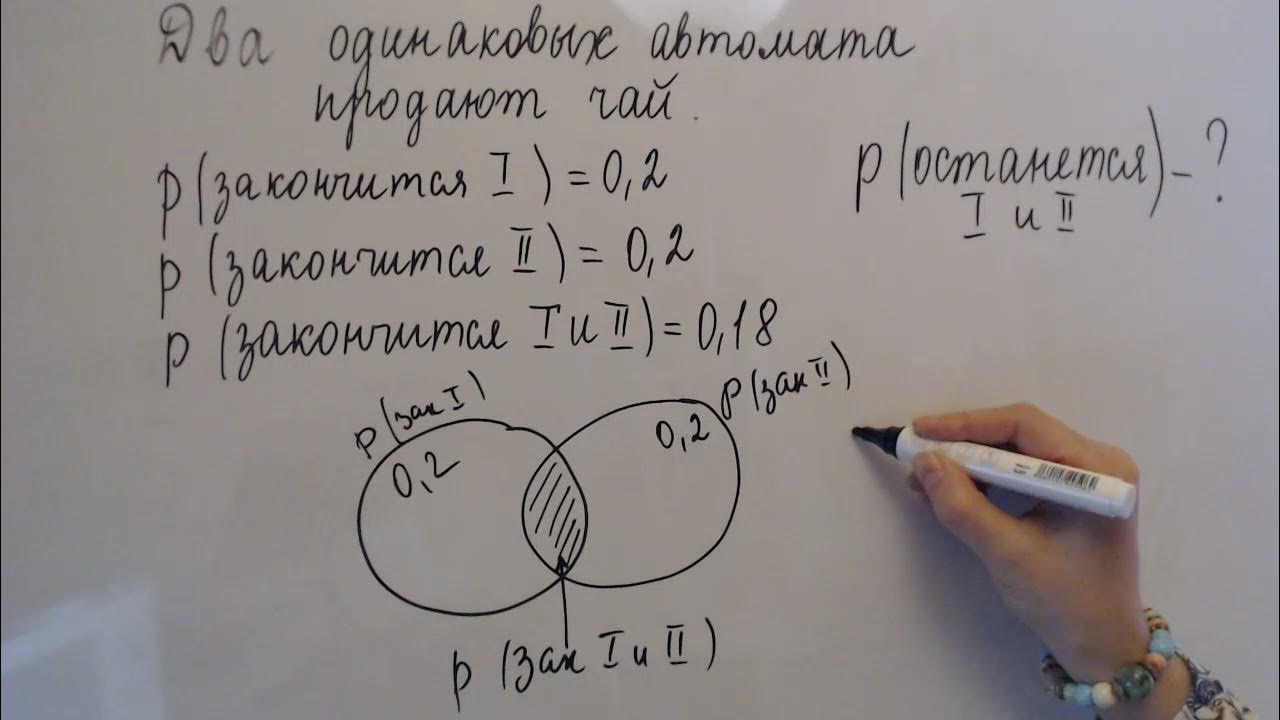 Два одинаковых автомата
продают чай.
p(закончится I) = 0,2
p(закончится II) = 0,2
p(закончится I и II) = 0,18
p(останется) - ?
I и II
p(зак I)
0,2
p(зак II)
0,2
p(зак I и II)